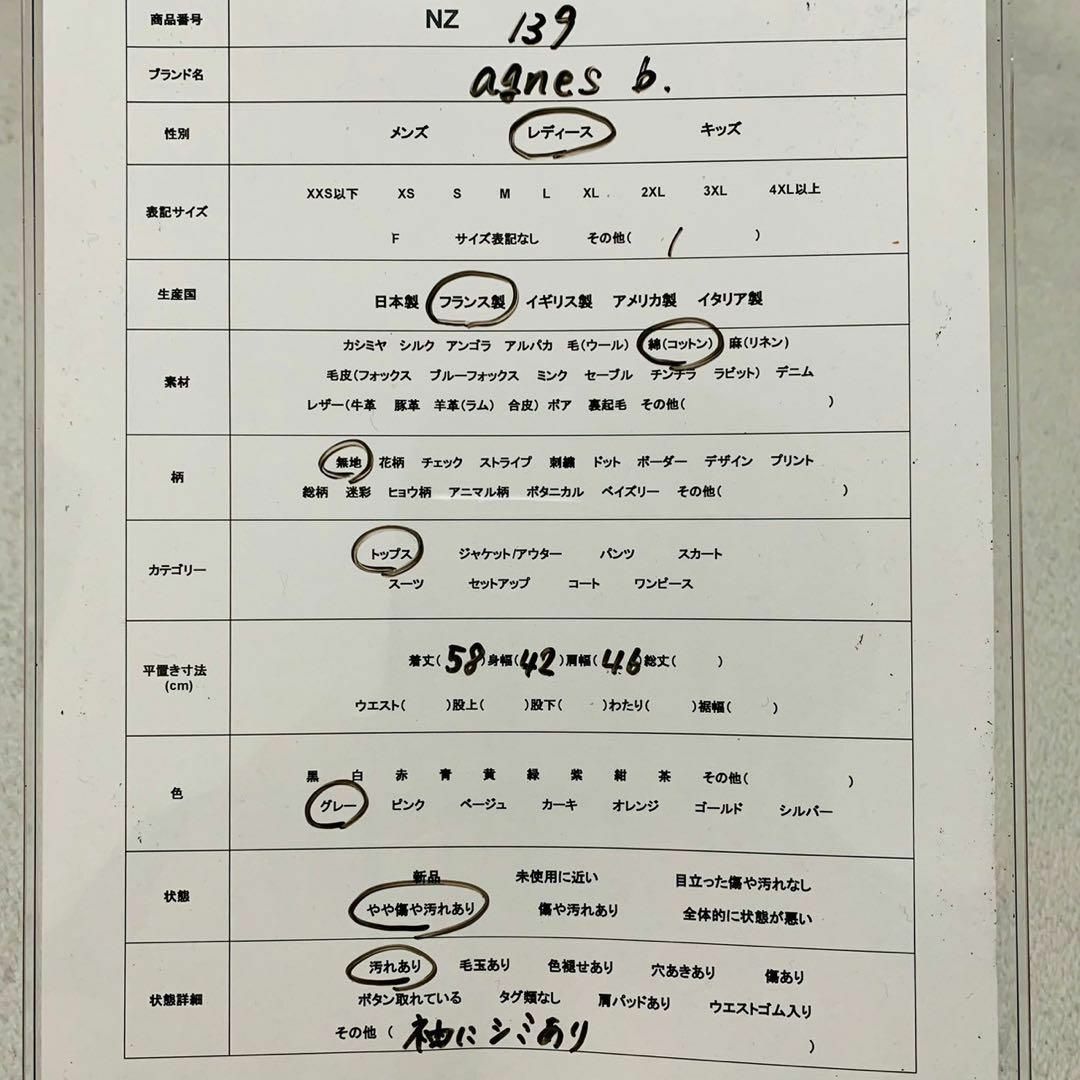 商品番号 NZ 139
ブランド名 agnes b.
性別 メンズ レディース キッズ
XXS以下 XS S M L XL 2XL 3XL 4XL以上
表記サイズ
F サイズ表記なし その他( 1 )
生産国 日本製 フランス製 イギリス製 アメリカ製 イタリア製
カシミヤ シルク アンゴラ アルパカ 毛(ウール) 綿(コットン) 麻(リネン)
素材 毛皮(フォックス ブルーフォックス ミンク セーブル チンチラ ラビット) デニム
レザー(牛革 豚革 羊革(ラム) 合皮) ボア 裏起毛 その他( )
無地 花柄 チェック ストライプ 刺繍 ドット ボーダー デザイン プリント
柄
総柄 迷彩 ヒョウ柄 アニマル柄 ボタニカル ペイズリー その他( )
トップス ジャケット/アウター パンツ スカート
カテゴリー
スーツ セットアップ コート ワンピース
着丈(58)身幅(42)肩幅(46)総丈( )
平置き寸法
(cm)
ウエスト( )股上( )股下( )わたり( )裾幅( )
黒 白 赤 青 黄 緑 紫 紺 茶 その他( )
色
グレー ピンク ベージュ カーキ オレンジ ゴールド シルバー
新品 未使用に近い 目立った傷や汚れなし
状態
やや傷や汚れあり 傷や汚れあり 全体的に状態が悪い
汚れあり 毛玉あり 色褪せあり 穴あきあり 傷あり
状態詳細 ボタン取れている タグ類なし 肩パッドあり ウエストゴム入り
その他 ( 袖にシミあり )